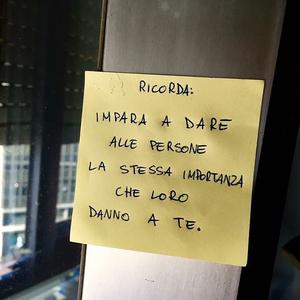 RICORDA:
IMPARA A DARE
ALLE PERSONE
LA STESSA IMPORTANZA
CHE LORO
DANNO A TE.